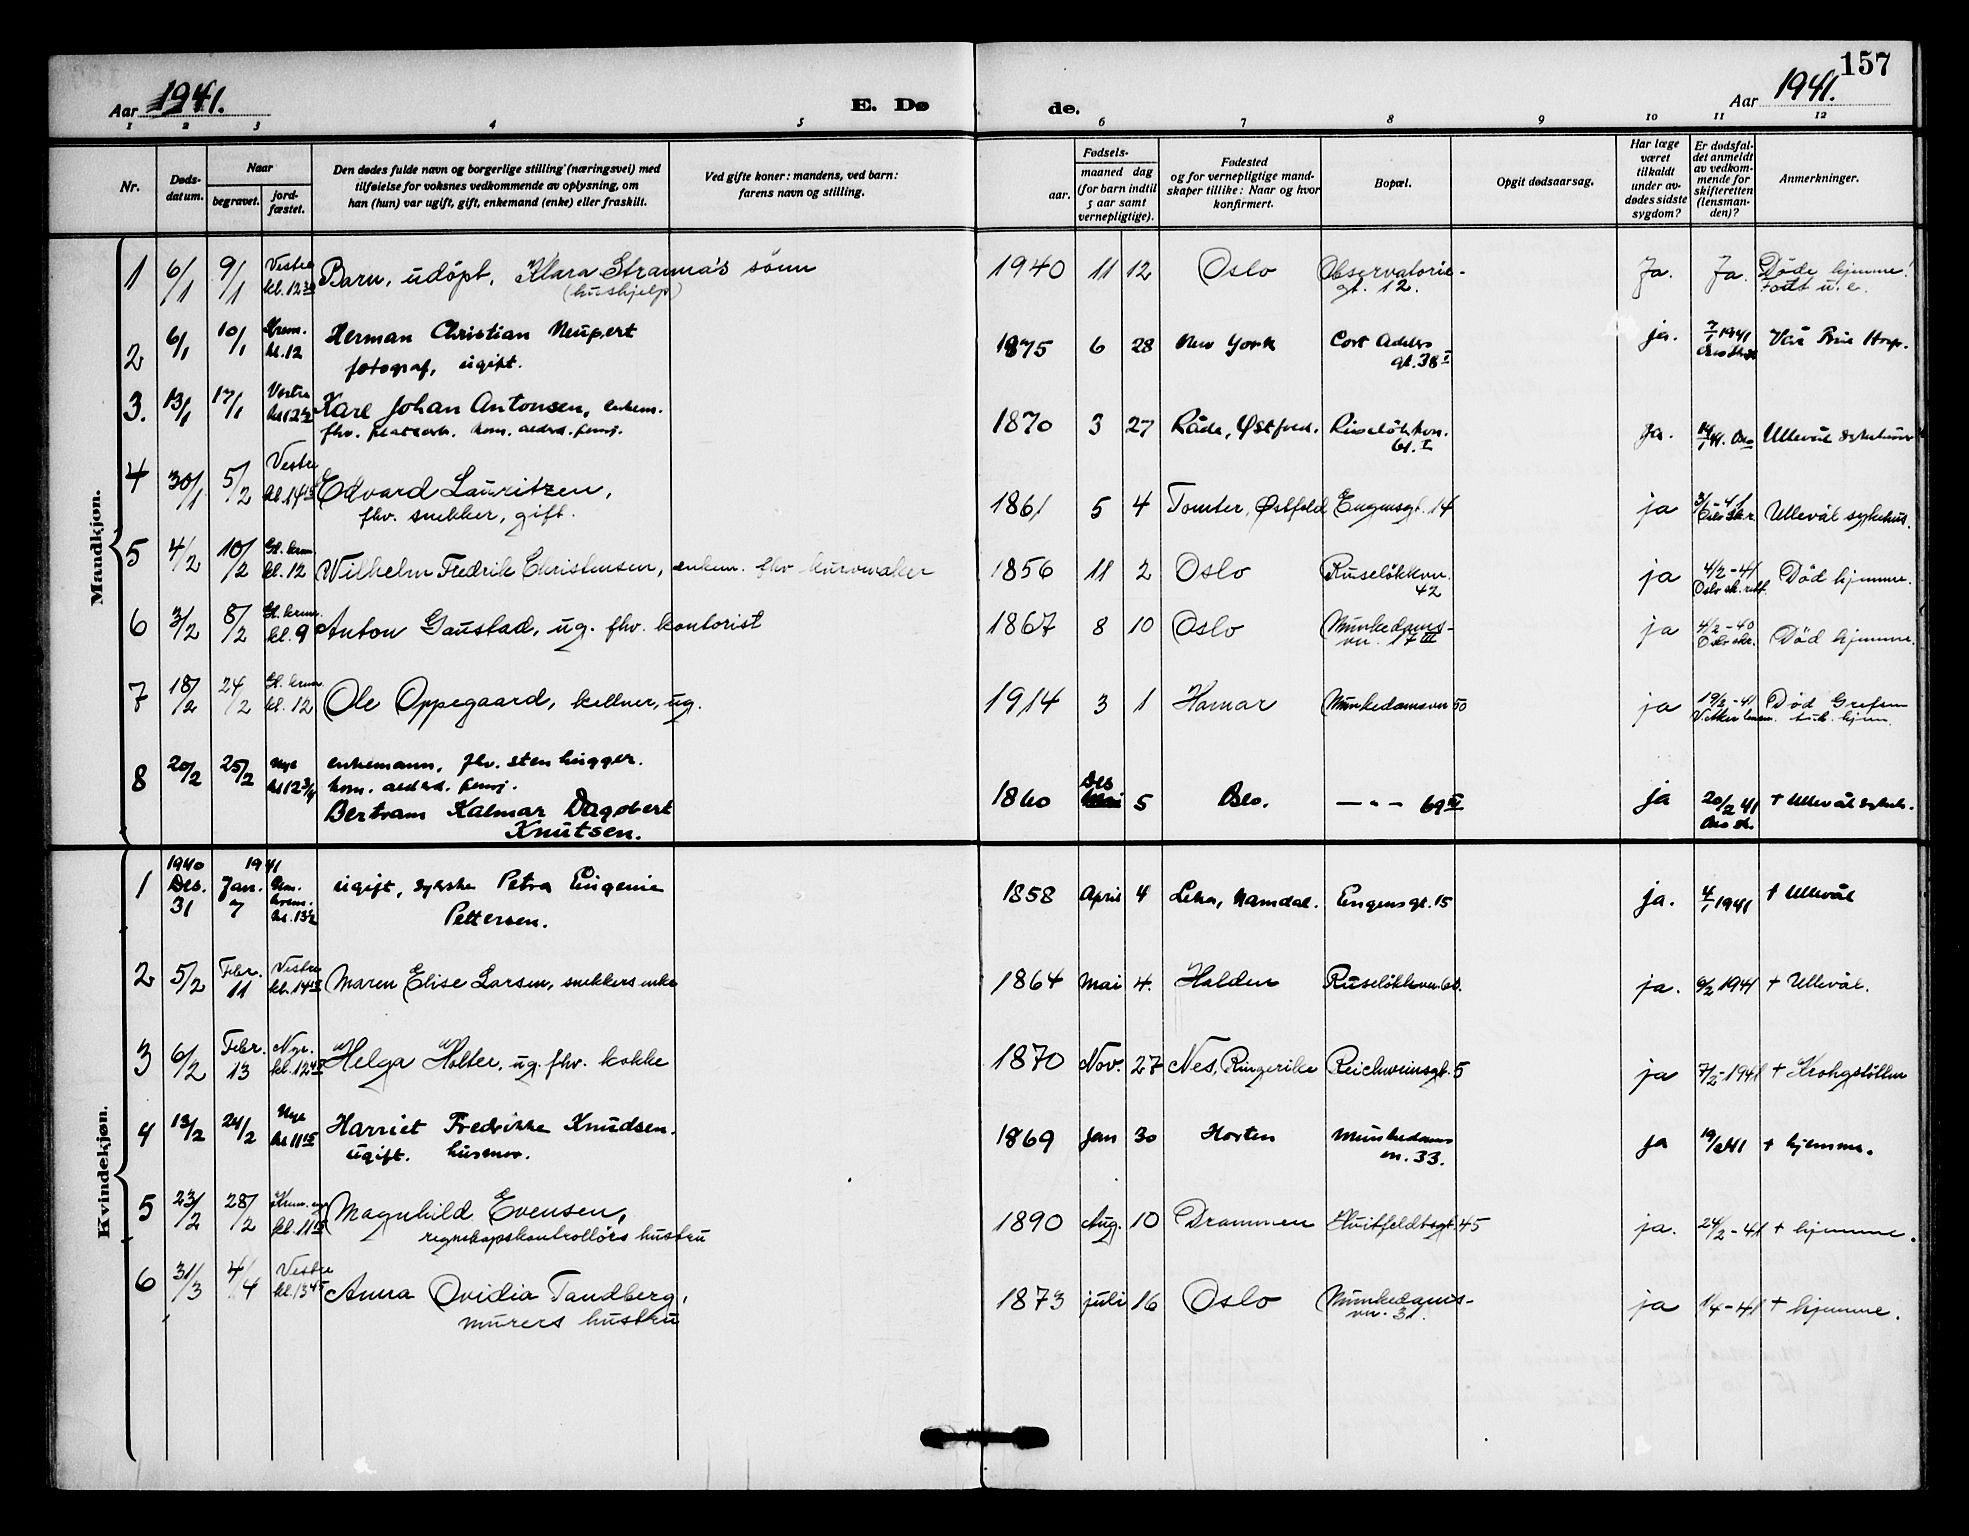 157
Aar 1941.
E. Dø
de.
Aar 1941.
1 2 3 4 5 6 7 8 9 10 11 12
Nr.
Døds-
datum.
Naar
begravet.
jord-
fæstet.
Den dødes fulde navn og borgerlige stilling (næringsvei) med
tilføielse for voksnes vedkommende av oplysning, om
han (hun) var ugift, gift, enkemand (enke) eller fraskilt.
Ved gifte koner: mandens, ved barn:
farens navn og stilling.
Fødsels-
aar.
maaned dag
(for barn indtil
5 aar samt
vernepligtige).
Fødested
og for vernepligtige mand-
skaper tillike: Naar og hvor
konfirmert.
Bopæl.
Opgit dødsaarsag.
Har læge
været
tilkaldt
under av-
dødes sidste
sygdom?
Er dødsfal-
det anmeldt
av vedkom-
mende for
skifteretten
(lensman-
den)?
Anmerkninger.
Mandkjøn.
1 6/1 9/1 Vestre kl. 12 30 Barn, udöpt, Klara Stranna's sönn 1940 11 12 Oslo Observatorie- Ja. Ja. Döde hjemme!
(hushjelp) gt. 12. u. e.
2 6/1 10/1 Krem. kl. 12 Herman Christian Neupert 1875 6 28 New York Cort Adelers ja. 7/1 1941 Vår Frue Hosp.
fotograf, ugift. gt. 38 I
3. 13/1 17/1 Vestre Karl Johan Antonsen, enkem. 1870 3 27 Råde, Østfold. Ruseløkkvn. ja. Ullevål sykehus
fhv. kom. aldrd. pensj. 61. I
4 30/1 5/2 Vestre kl. 14 15 Edvard Lauritzen, 1861 5 4 Tomter, Østfold Engensgt. 14 ja Oslo skr. Ullevål sykehus.
fhv. snekker, gift.
5 4/2 10/2 Gl. krem. kl. 12 Wilhelm Fredrik Christensen, enkem. fhv. kurvmaker 1856 11 2 Oslo Ruseløkkvn. 42 ja 4/2-41 Oslo sk. rett. Död hjemme.
6 3/2 8/2 Gl. krem. kl. 9 Anton Gaustad, ug. fhv. kontorist 1867 8 10 Oslo Munkedams- ja 4/2-40 Oslo skr. Död hjemme.
vn. 17 III
7 18/2 24/2 Gl. krem. kl. 12 Ole Oppegaard, kellner, ug. 1914 3 1 Hamar Munkedamsvn 50 ja 19/2-41 Död Grefsen
tub. hjem.
8 20/2 25/2 Nye kl 12 3/4 enkemann, fhv. stenhugger. 1860 Des 5 Oslo. —"— 69 IV ja 20/2 41 + Ullevål sykeh.
kom. aldrd. pensj.
Bertram Kalmar Dagobert
Knutsen.
Kvindekjøn.
1 1940 Des. 31 1941 Jan. 7 krem. kl. 13 1/2 ugift, sykske Petra Eugenie 1858 April 4 Leka, Namdal. Engensgt. 15 ja. 4/1 1941 + Ullevål
Pettersen.
2 5/2 Febr. 11 Vestre kl. 14 15 Maren Elise Larsen, snekkers enke 1864 Mai 4. Halden Ruseløkkvn. 60. ja. 6/2 1941 + Ullevål.
3 6/2 Febr. 13 Nye. kl. 12 45 Helga Holter, ug. fhv. kokke 1870 Nov. 27 Nes, Ringerike Reichweinsgt. 5 ja 7/2-1941 + Krohgstötten
4 13/2 24/2 Nye kl 11 15 Harriet Fredrikke Knudsen. 1869 Jan 30 Horten Munkedams ja + hjemme.
ugift. husmor. vn. 33.
5 23/2 28/2 kl. 11 15 Magnhild Evensen, 1890 Aug. 10 Drammen Huitfeldtsgt. 45 ja. 24/2-41 + hjemme.
regnskapskontrollörs hustru
6 31/3 4/4 Vestre kl. 13 45 Anna Ovidia Tandberg, 1873 juli 16 Oslo Munkedams- ja 1/4-41 + hjemme.
murers hustru vn. 31.